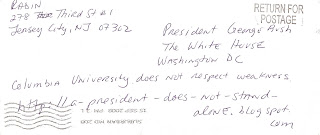 RABIN
278 Third St #1
Jersey City, NJ 07302
RETURN FOR
POSTAGE
President George Bush
The White House
Washington DC
Columbia University does not respect weakness
http://a-president-does-not-stand-
alone.blogspot.
com